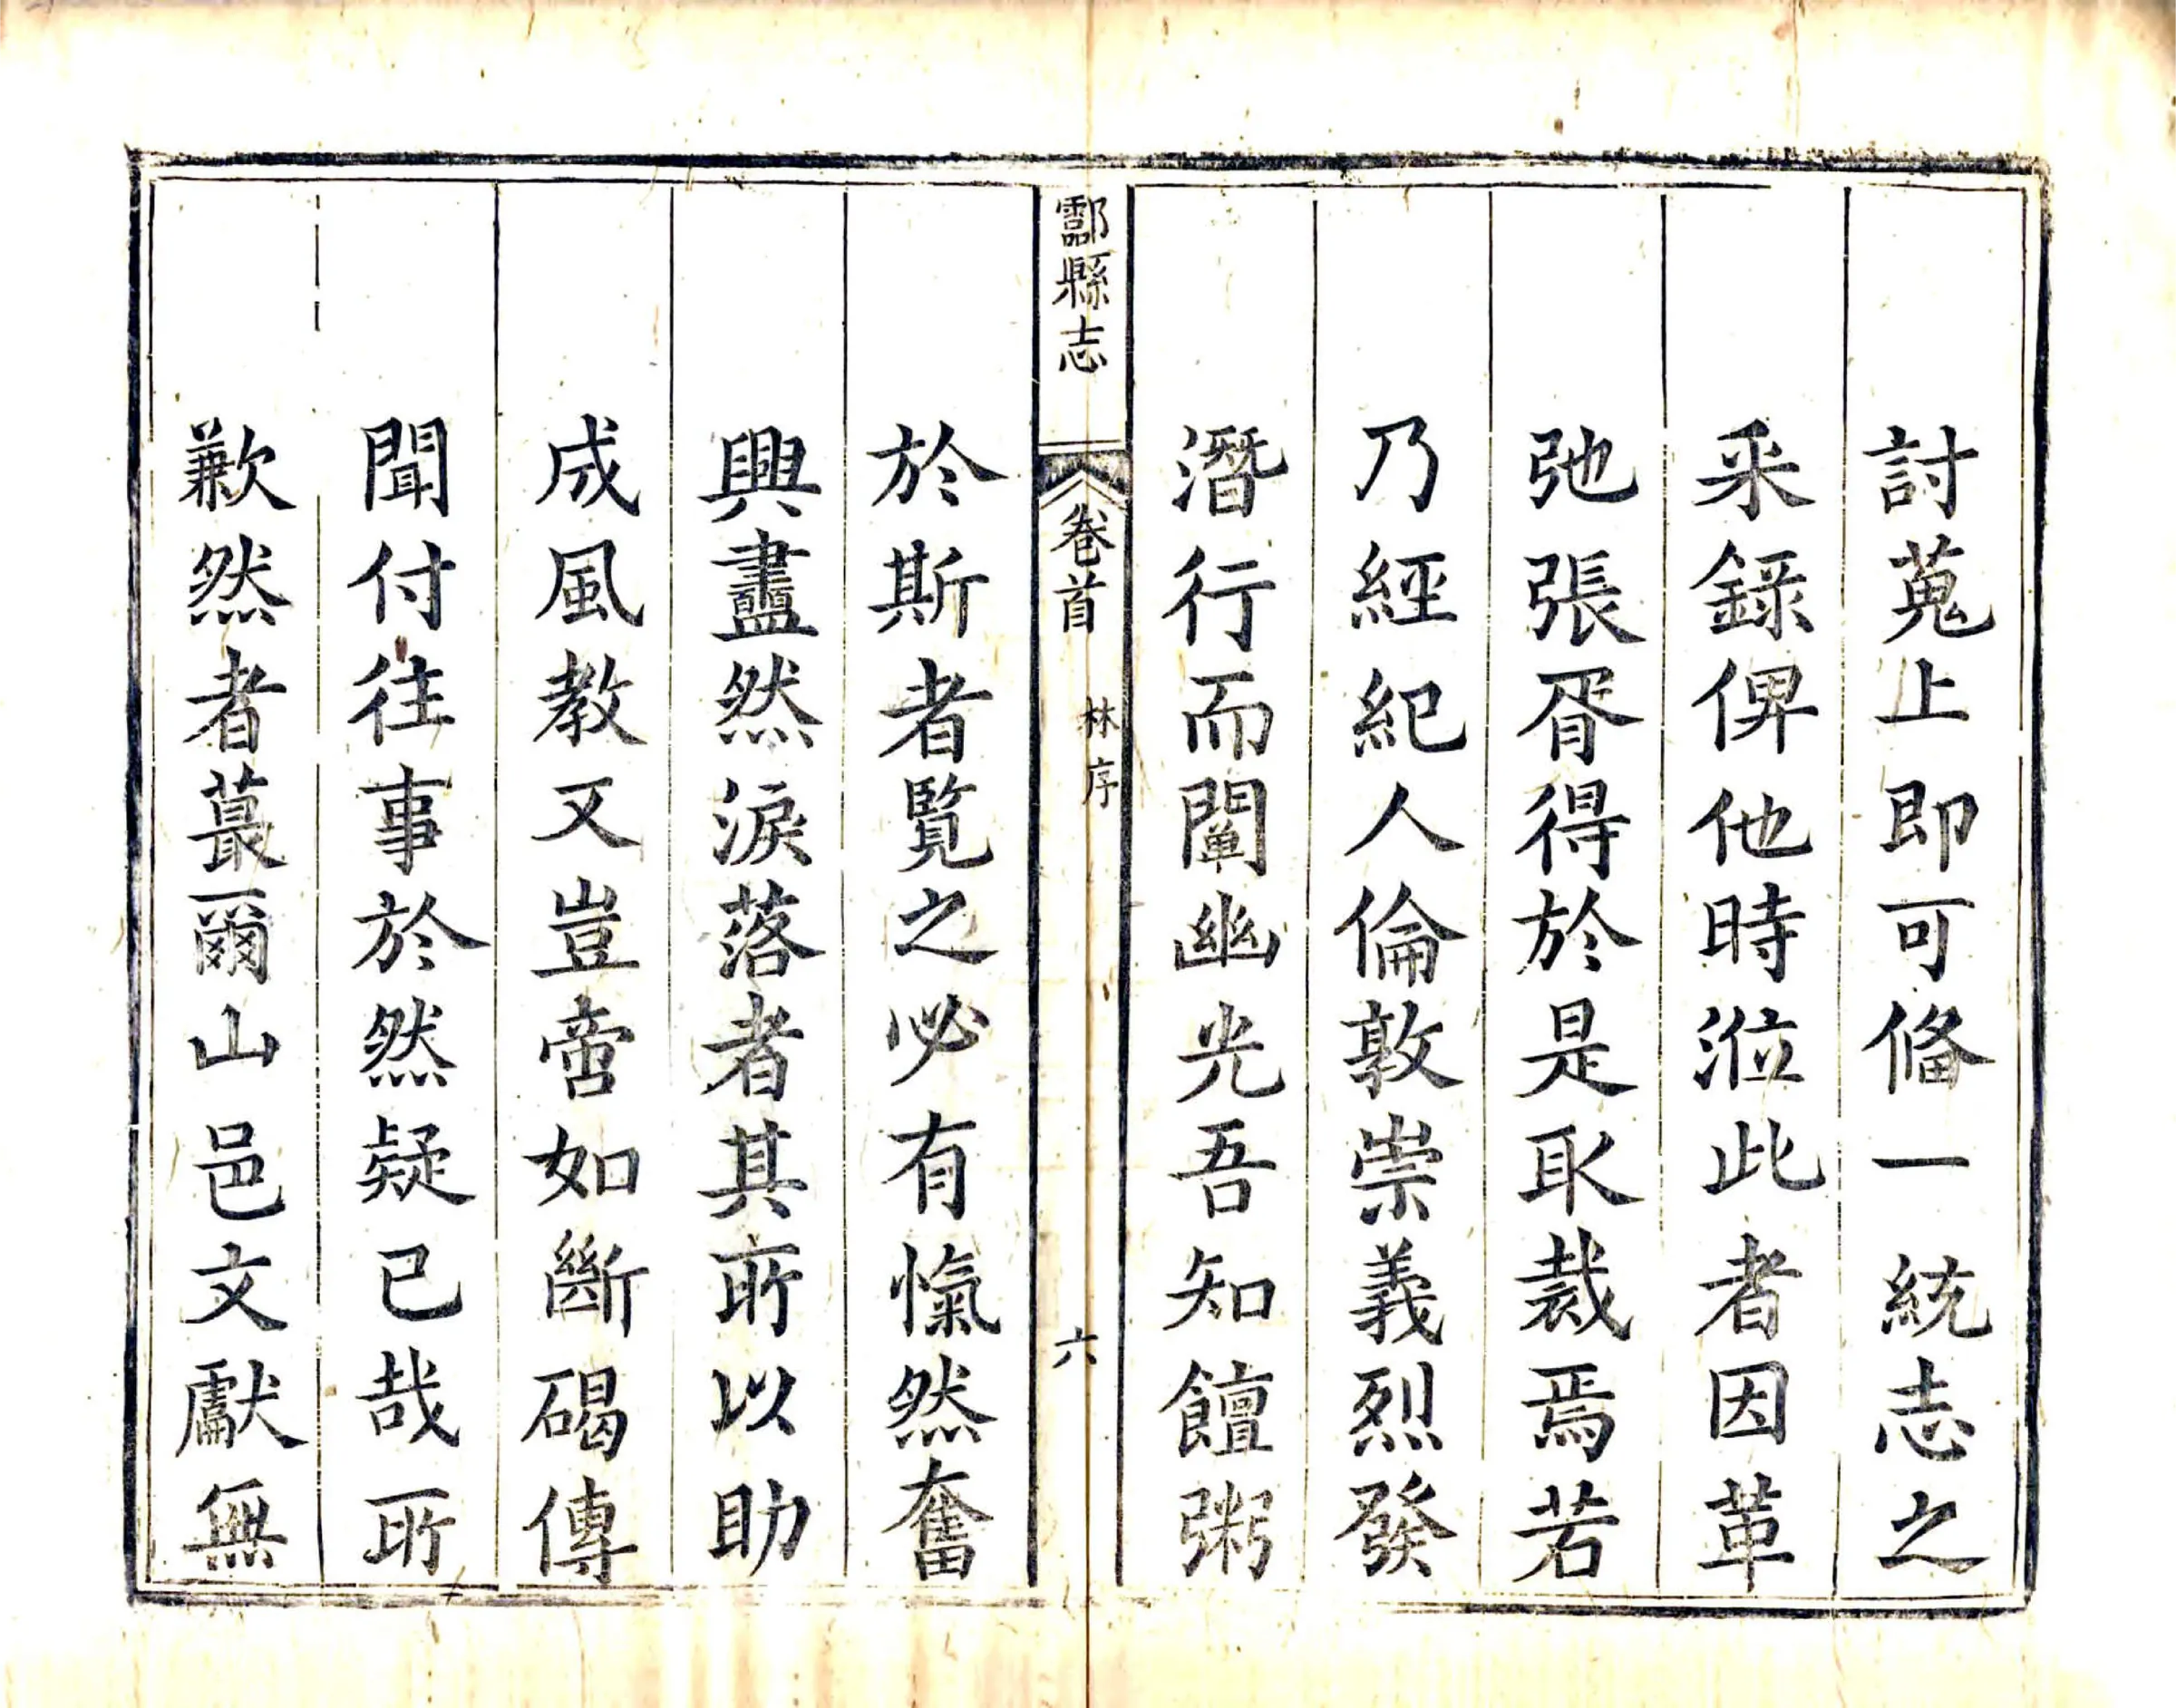 討蒐上即可俻一統志之
采錄俾他時涖此者因革
弛張胥得於是取裁焉若
乃經紀人倫敦崇義烈發
潛行而闡幽光吾知饘粥
酃縣志
卷首
林序
六
於斯者覧之必有愾然奮
興衋然淚落者其所以助
成風教又豈啻如斷碣傳
聞付往事於然疑已哉所
歉然者蕞爾山邑文獻無